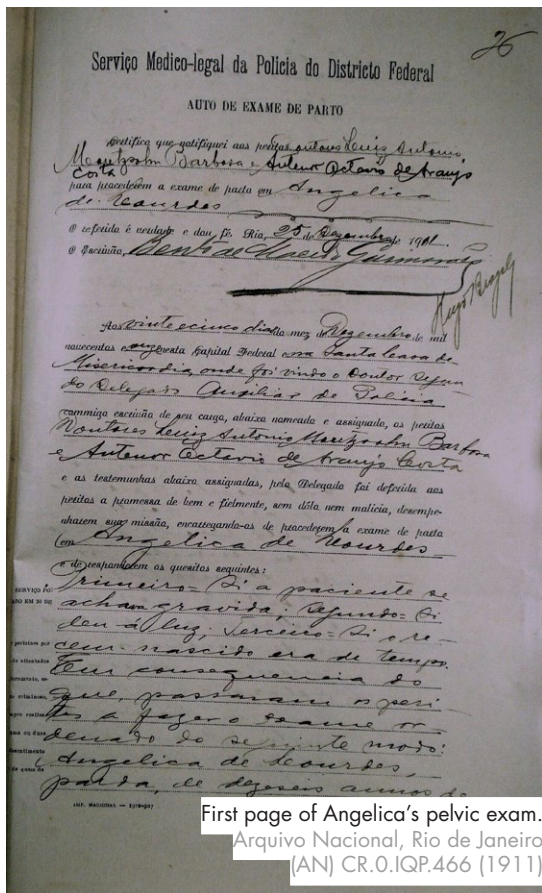 26
Serviço Medico-legal da Policia do Districto Federal
AUTO DE EXAME DE PARTO
Certifico que notifiquei aos peritos doutores Luiz Antonio
Moretzsohn Barbosa e Antenor Octavio de Araujo
Costa
para procederem a exame de parto em Angelica
de Lourdes
O referido é verdade e dou fé. Rio, 25 de Dezembro de 1911.
O Escrivão,
Aos vinte e cinco dias do mez de Dezembro de mil
novecentos e onze nesta Capital Federal e na Santa Casa de
Misericordia, onde foi vindo o Doutor Segun
do Delegado Auxiliar de Policia
commigo escrivão de seu cargo, abaixo nomeado e assignado, os peritos
Doutores Luiz Antonio Moretzsohn Barbosa
e Antenor Octavio de Araujo Costa
e as testemunhas abaixo assignadas, pelo Delegado foi deferida aos
peritos a promessa de bem e fielmente, sem dólo nem malicia, desempe-
nharem sua missão, encarregando-os de procederem a exame de parto
em Angelica de Lourdes
e de responderem os quesitos seguintes:
Primeiro = Si a paciente se
achava gravida; Segundo = Si
deu á luz; Terceiro = Si o re-
cem-nascido era de tempo.
Em consequencia do
que, passaram os peri-
tos a fazer o exame or-
denado do seguinte modo:
Angelica de Lourdes,
parda, de dezeseis annos de
IMP. NACIONAL —
First page of Angelica's pelvic exam.
Arquivo Nacional, Rio de Janeiro
(AN) CR.0.IQP.466 (1911)